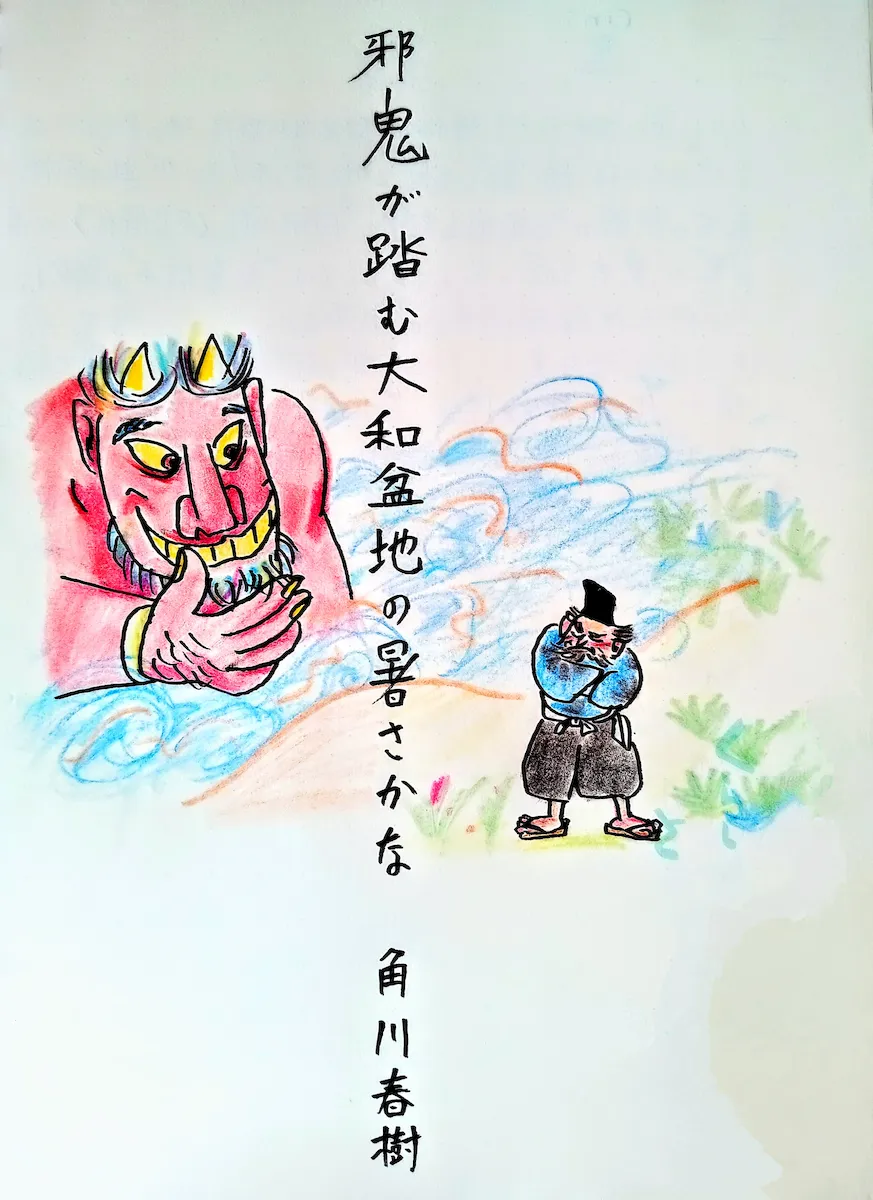 邪鬼が踏む大和盆地の暑さかな 角川春樹